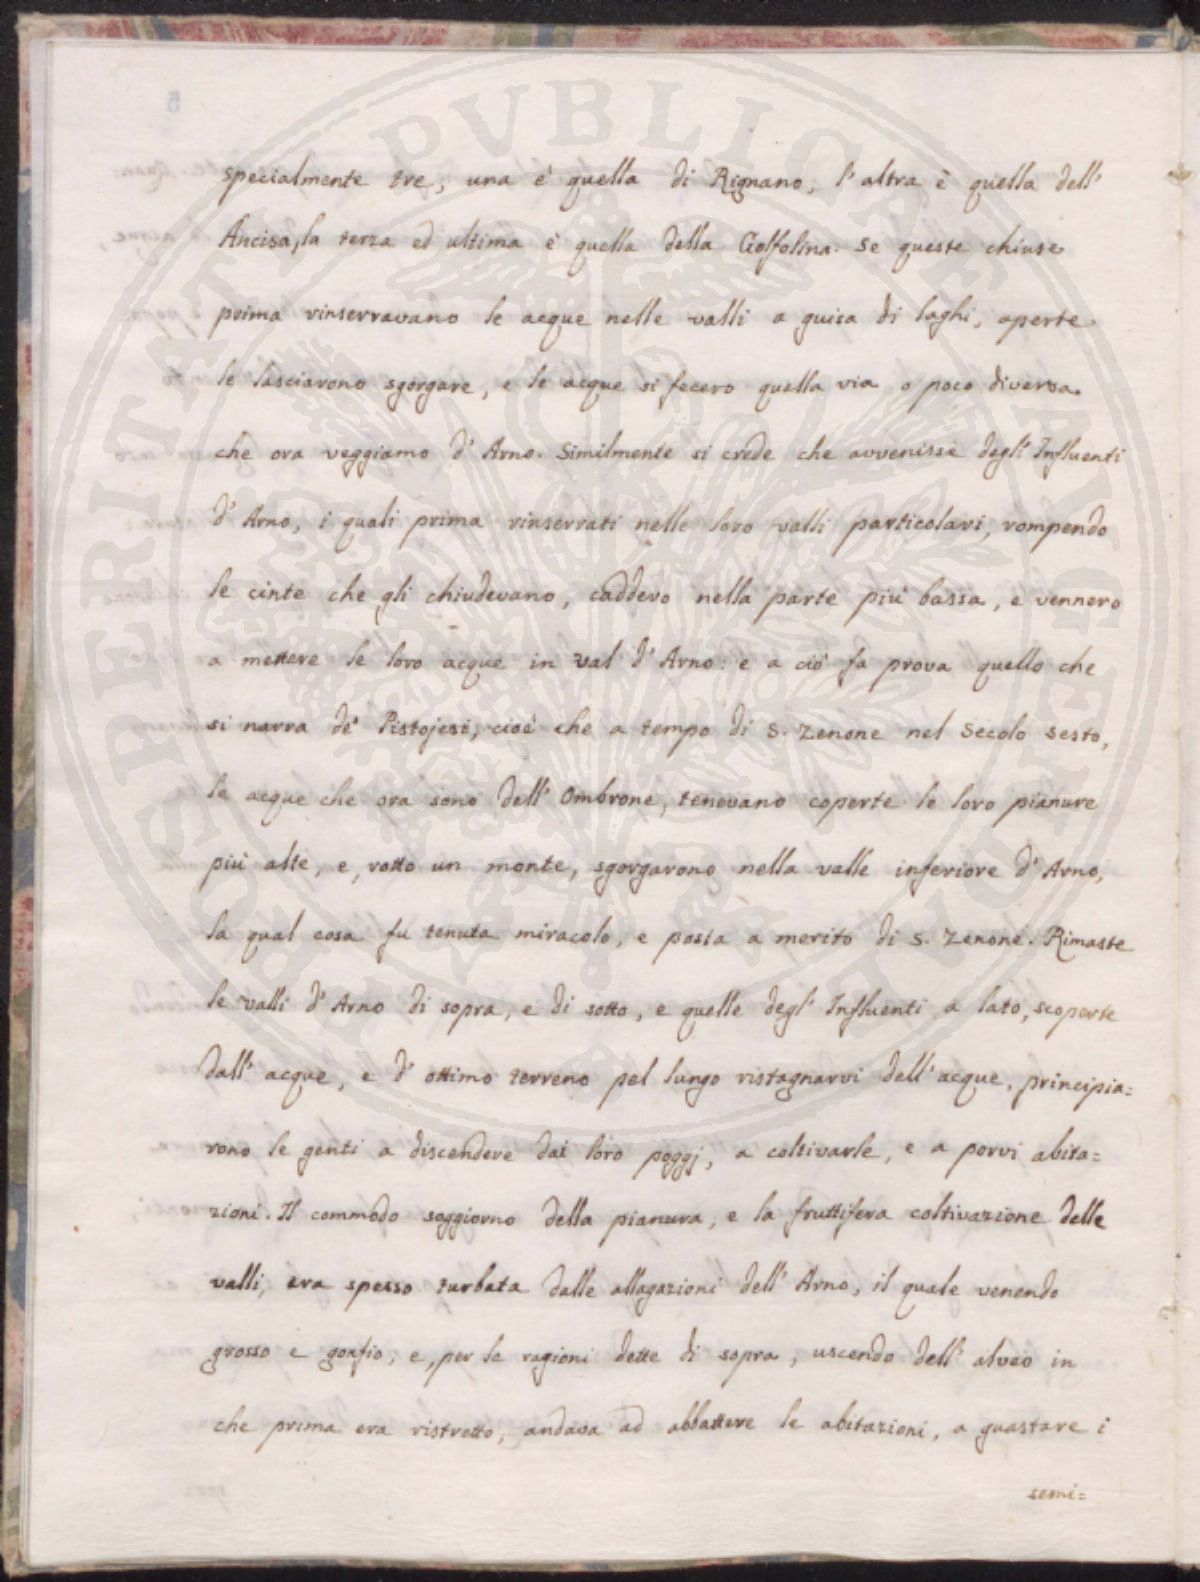 specialmente tre, una è quella di Rignano, l'altra è quella dell'
Ancisa, la terza ed ultima è quella della Golfolina. Se queste chiuse
prima rinserravano le acque nelle valli a guisa di laghi, aperte
le lasciarono sgorgare, e le acque si fecero quella via o poco diversa
che ora veggiamo d'Arno. Similmente si crede che avvenisse degl'Influenti
d'Arno, i quali prima rinserrati nelle loro valli particolari, rompendo
le cinte che gli chiudevano, caddero nella parte più bassa, e vennero
a mettere le loro acque in Val d'Arno: e a ciò fa prova quello che
si narra de' Pistojesi, cioè che a tempo di S. Zenone nel Secolo sesto,
le acque che ora sono dell'Ombrone, tenevano coperte le loro pianure
più alte, e, rotto un monte, sgorgarono nella valle inferiore d'Arno,
la qual cosa fu tenuta miracolo, e posta a merito di S. Zenone. Rimaste
le valli d'Arno di sopra, e di sotto, e quelle degl'Influenti a lato, scoperte
dall'acque, e d'ottimo terreno pel lungo ristagnarvi dell'acque, principia=
rono le genti a discendere dai loro poggj, a coltivarle, e a porvi abita=
zioni. Il commodo soggiorno della pianura, e la fruttifera coltivazione delle
valli, era spesso turbata dalle allagazioni dell'Arno, il quale venendo
grosso e gonfio, e, per le ragioni dette di sopra, uscendo dell'alveo in
che prima era ristretto, andava ad abbattere le abitazioni, a guastare i
semi=
PROSPERITATI PVBLICAE AVGENDAE